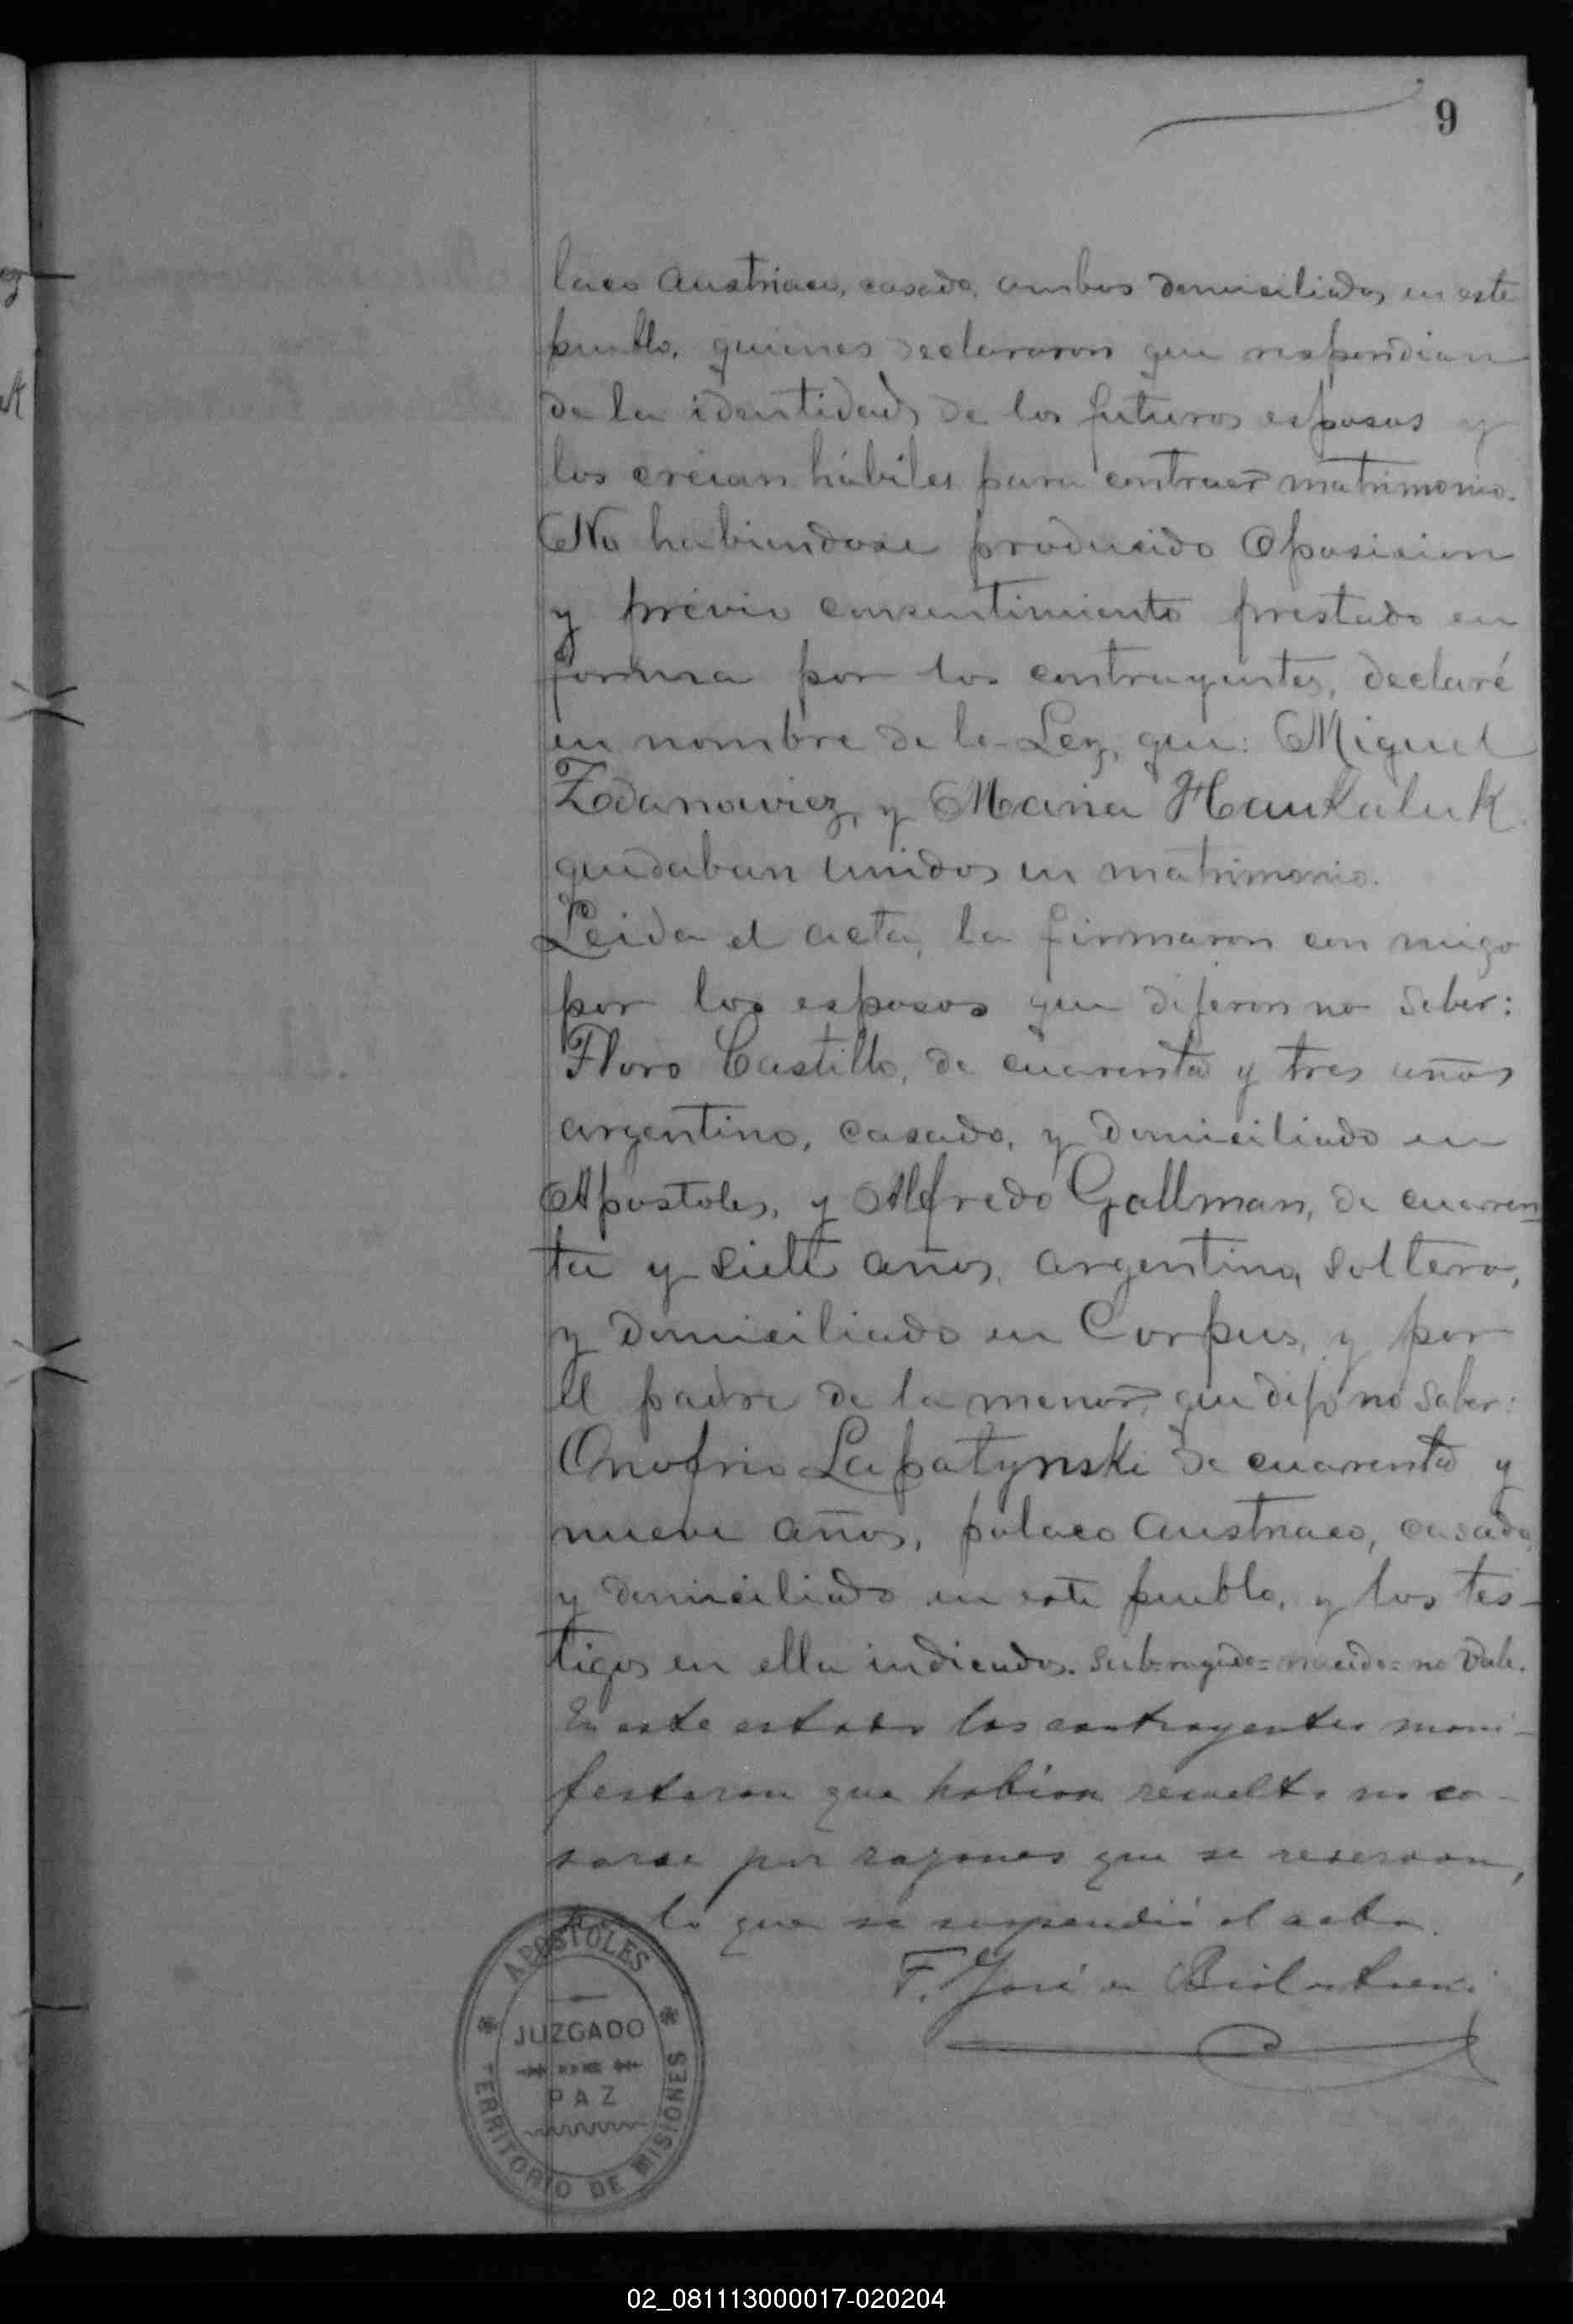 9
laco austriaco, casado, ambos domiciliados en este
pueblo, quienes declararon que respondian
de la identidad, de los futuros esposos y
los creian hábiles para contraer matrimonio.
No habiendose producido Oposision
y prévio consentimiento prestado en
forma por los contrayentes, declaré
en nombre de la Ley, que: Miguel
Zdanowicz, y Maria Haukaluk
quedaban unidos en matrimonio.
Leida el acta, la firmaron con migo
por los esposos que dijeron no saber:
Floro Castillo, de cuarenta y tres años
argentino, casado, y domiciliado en
Apostoles, y Alfredo Gallman, de cuaren
ta y siete años, argentino, soltero,
y domiciliado en Corpus, y por
el padre de la menor, que dijo no saber:
Onofrio Lapatynski de cuarenta y
nueve años, polaco austriaco, casado,
y domiciliado en este pueblo, y los tes-
tigos en ella indicados. Sub-rayado = nacido = no Vale.
En este estado los contrayentes mani-
festaron que habian resuelto no ca-
sarse por razones que se reservan,
lo que se suspendió el acto.
F. José
APOSTOLES
JUZGADO
PAZ
TERRITORIO DE MISIONES
02_081113000017-020204